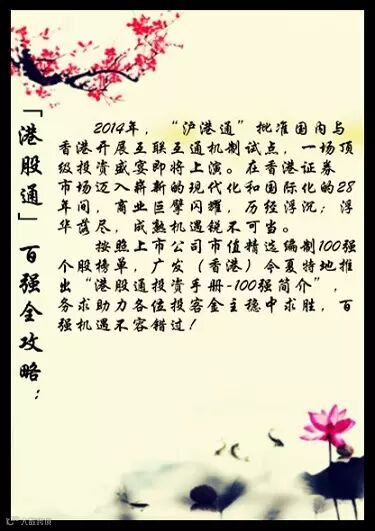 「港股通」百强全攻略：
2014年，“沪港通”批准国内与
香港开展互联互通机制试点，一场顶
级投资盛宴即将上演。在香港证券
市场迈入崭新的现代化和国际化的28
年间，商业巨擘闪耀，历经浮沉；浮
华落尽，成熟机遇锐不可当。
按照上市公司市值精选编制100强
个股榜单，广发（香港）今夏特地推
出“港股通投资手册-100强简介”，
务求助力各位投客金主稳中求胜，百
强机遇不容错过！